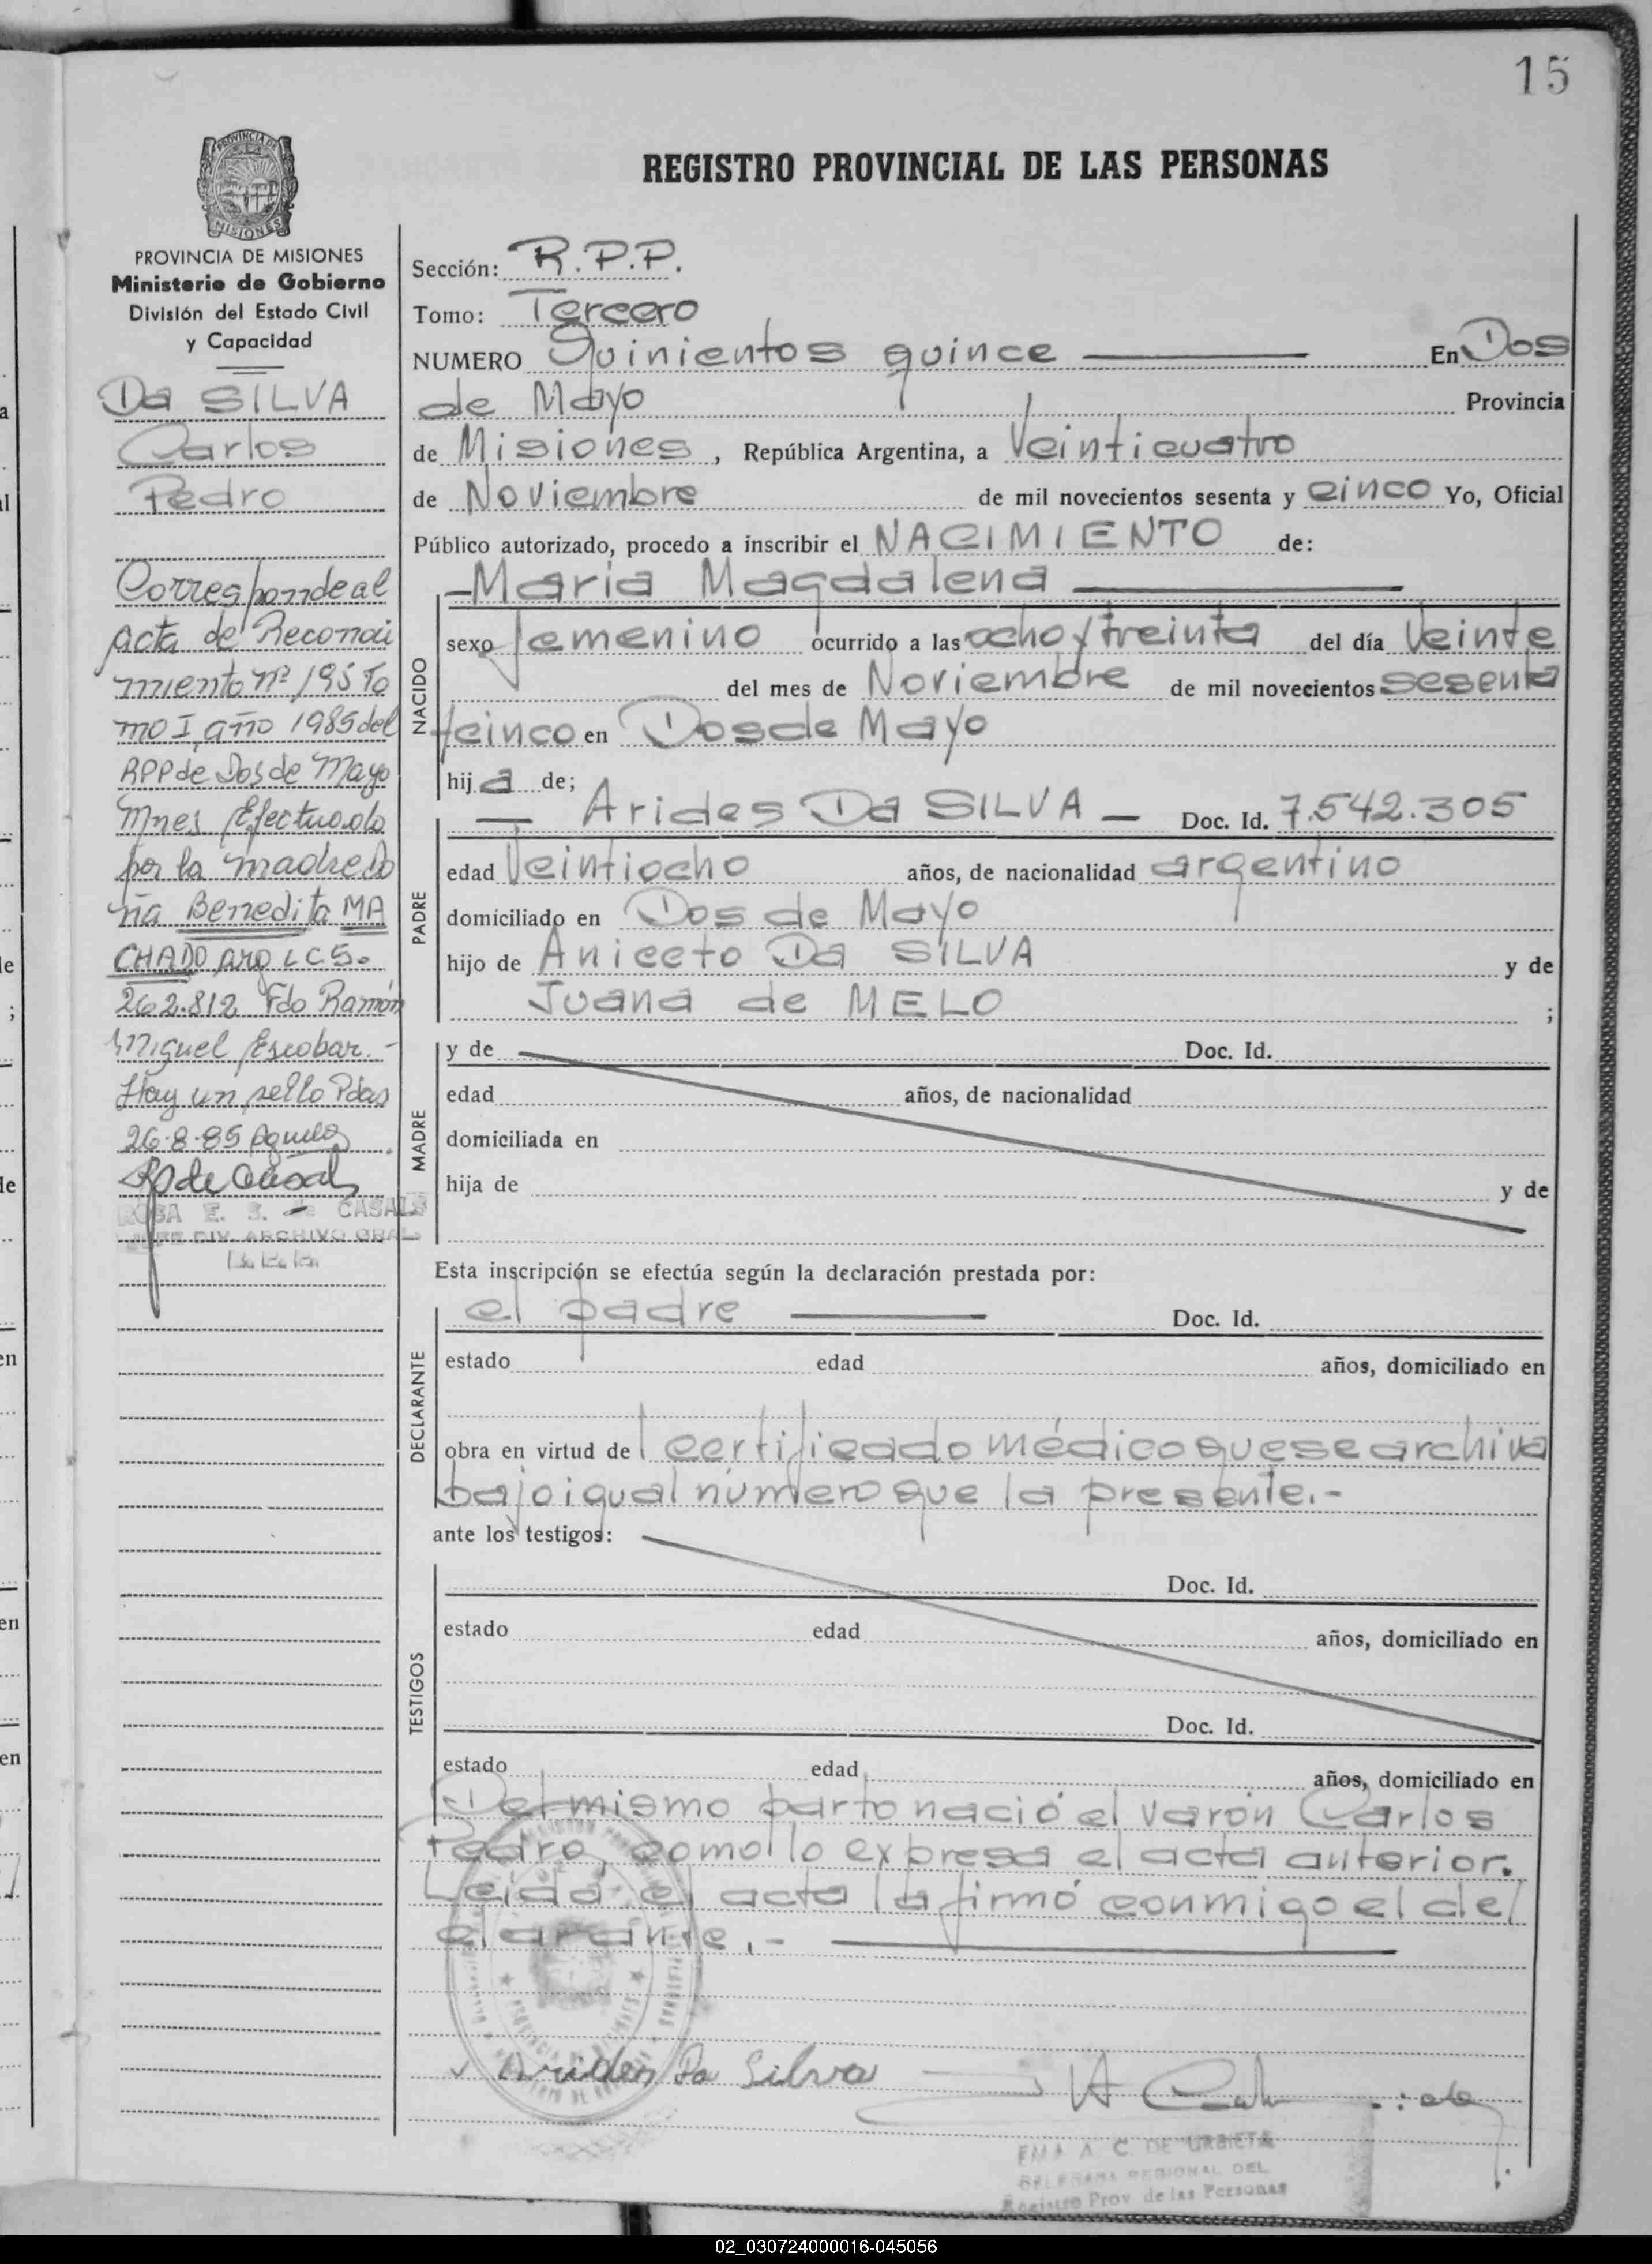 15
PROVINCIA DE
MISIONES
REGISTRO PROVINCIAL DE LAS PERSONAS
PROVINCIA DE MISIONES
Ministerio de Gobierno
División del Estado Civil
y Capacidad
Da SILVA
Carlos
Pedro
Corresponde al
acta de Reconoci
miento nº 195 To
mo I, año 1985 del
RPP de Dos de Mayo
Mnes Efectuado
por la madre Do
ña Benedita MA
CHADO arg LC 5.
262.812 Fdo Ramón
Miguel Escobar.-
Hay un sello Pdas
26-8-85
ROSA E. S. de CASALS
JEFE DIV. ARCHIVO GRAL.
Sección: R.P.P.
Tomo: Tercero
NUMERO Quinientos quince En Dos
de Mayo Provincia
de Misiones, República Argentina, a Veinticuatro
de Noviembre de mil novecientos sesenta y cinco Yo, Oficial
Público autorizado, procedo a inscribir el NACIMIENTO de:
-Maria Magdalena
NACIDO
sexo femenino ocurrido a las ocho y treinta del día Veinte
del mes de Noviembre de mil novecientos sesenta
y cinco en Dos de Mayo
hij a de;
PADRE
— Arides Da SILVA — Doc. Id. 7.542.305
edad Veintiocho años, de nacionalidad argentino
domiciliado en Dos de Mayo
hijo de Aniceto Da SILVA y de
Juana de MELO ;
MADRE
y de Doc. Id.
edad años, de nacionalidad
domiciliada en
hija de y de
Esta inscripción se efectúa según la declaración prestada por:
DECLARANTE
el padre Doc. Id.
estado edad años, domiciliado en
obra en virtud de l certificado médico que se archiva
bajo igual número que la presente.-
ante los testigos:
TESTIGOS
Doc. Id.
estado edad años, domiciliado en
Doc. Id.
estado edad años, domiciliado en
Del mismo parto nació el varón Carlos
Pedro, como lo expresa el acta anterior.
Leida el acta la firmó conmigo el de/
clarante.-
Arides Da Silva
EMA A. C. DE URBIETA
DELEGADA REGIONAL DEL
Registro Prov. de las Personas
02_030724000016-045056